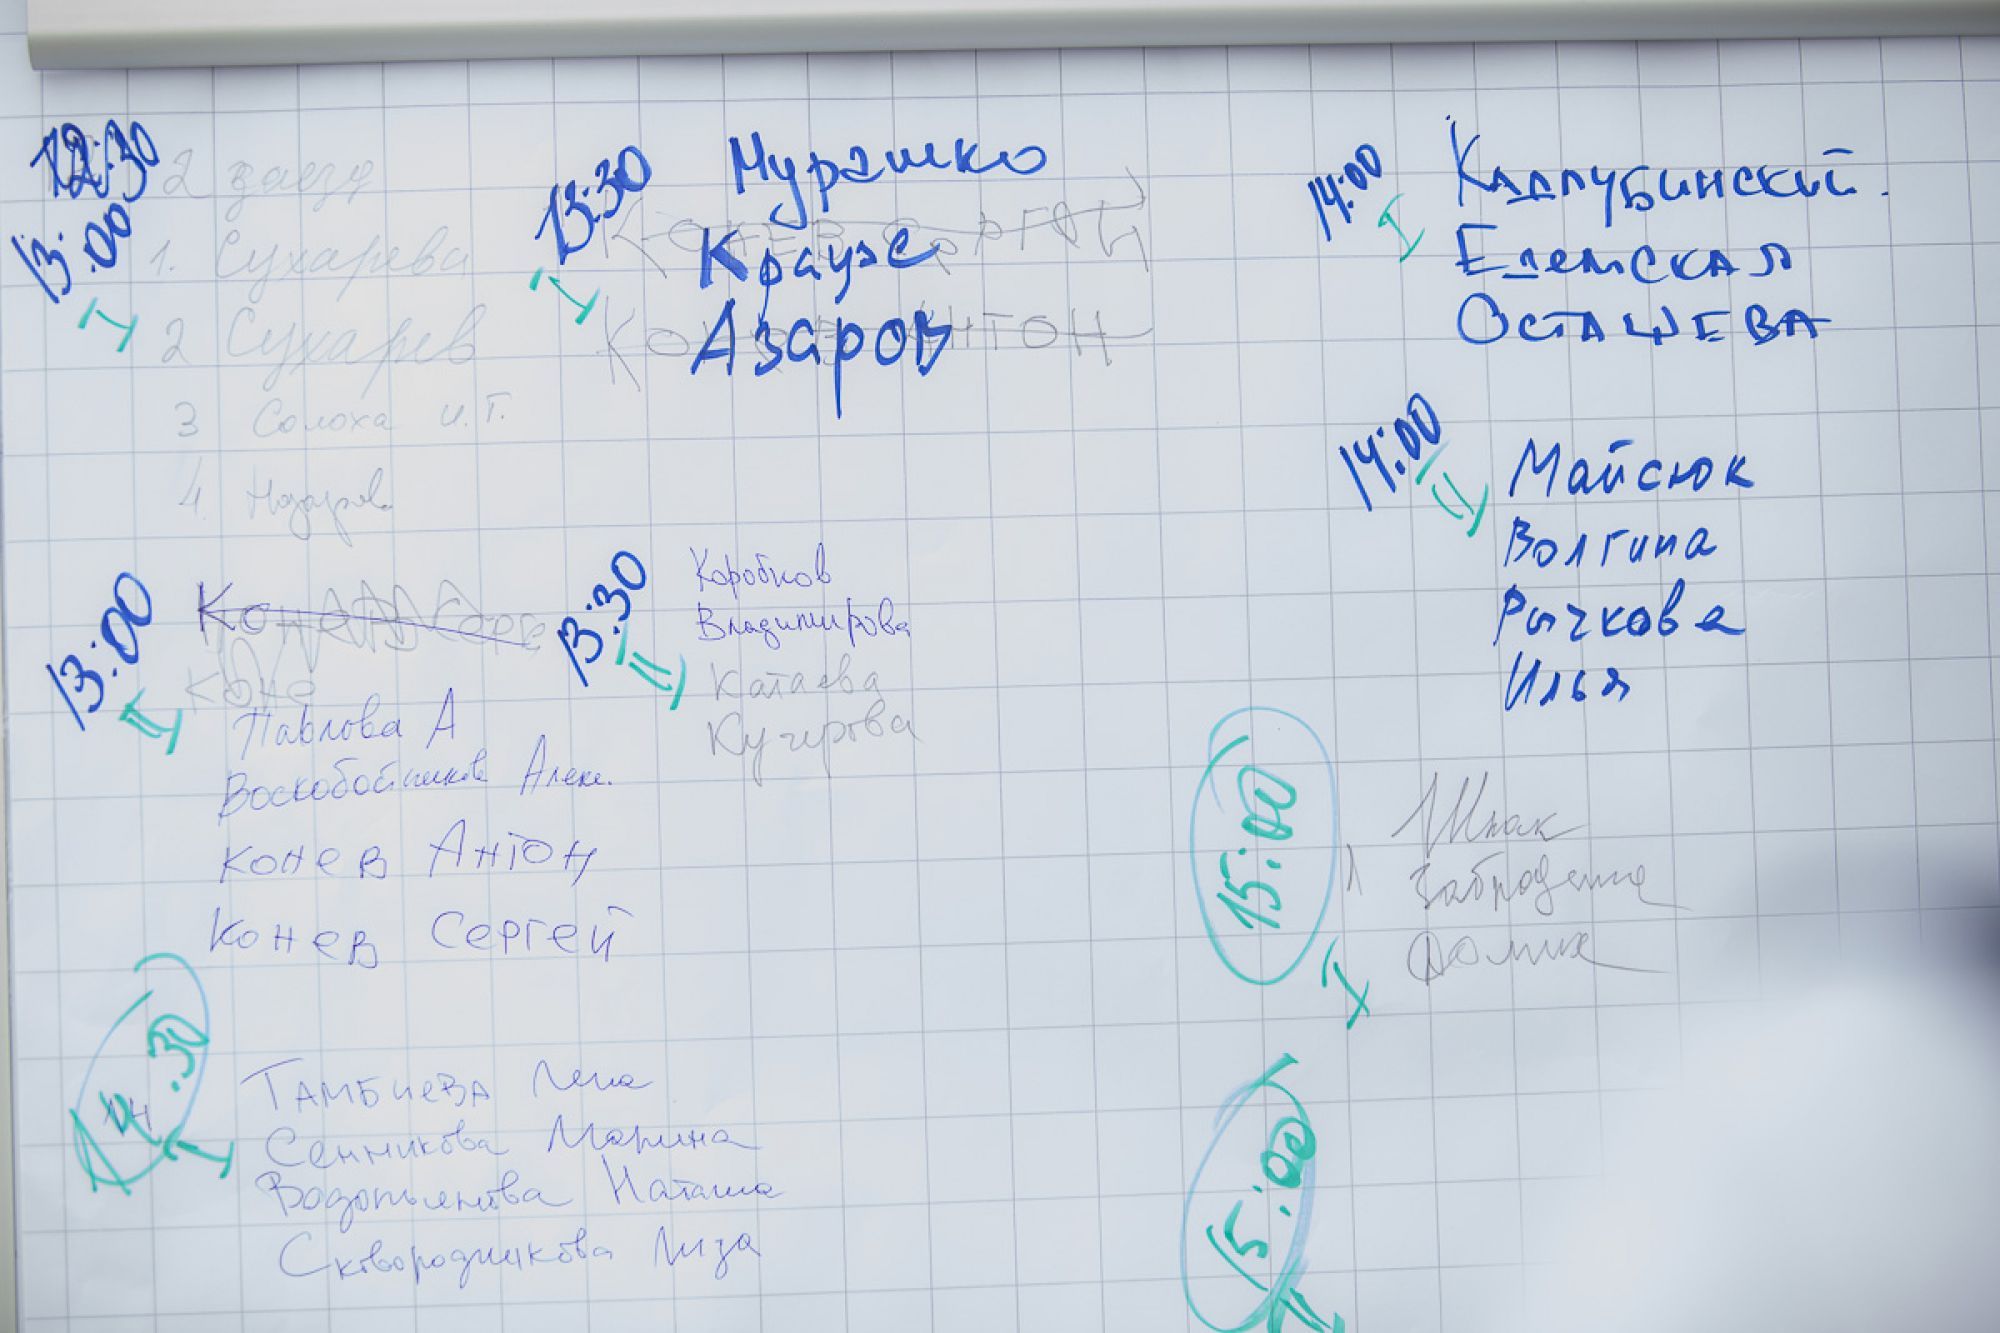 12:30
13:00
I
2 заезд
1. Сухарева
2 Сухарев
3 Солоха И.Г.
4.
13:30
I
Мурашко
Конев Сергей
Краузе
Азаров
Конев Антон
14:00
I
Кадлубинский.
Едемская
Осташева
13:00
II
Коне
Павлова А
Воскобойников Алек.
Конев Антон
Конев Сергей
13:30
II
Коробков
Владимирова
Катаева
Кучерова
14:00
II
Майсюк
Волгина
Рычкова
Илья
14:30
I
Тамбиева Лена
Сенникова Марина
Водопьянова Наташа
Сковородникова Лиза
15:00
I
Шпак
15:00
II